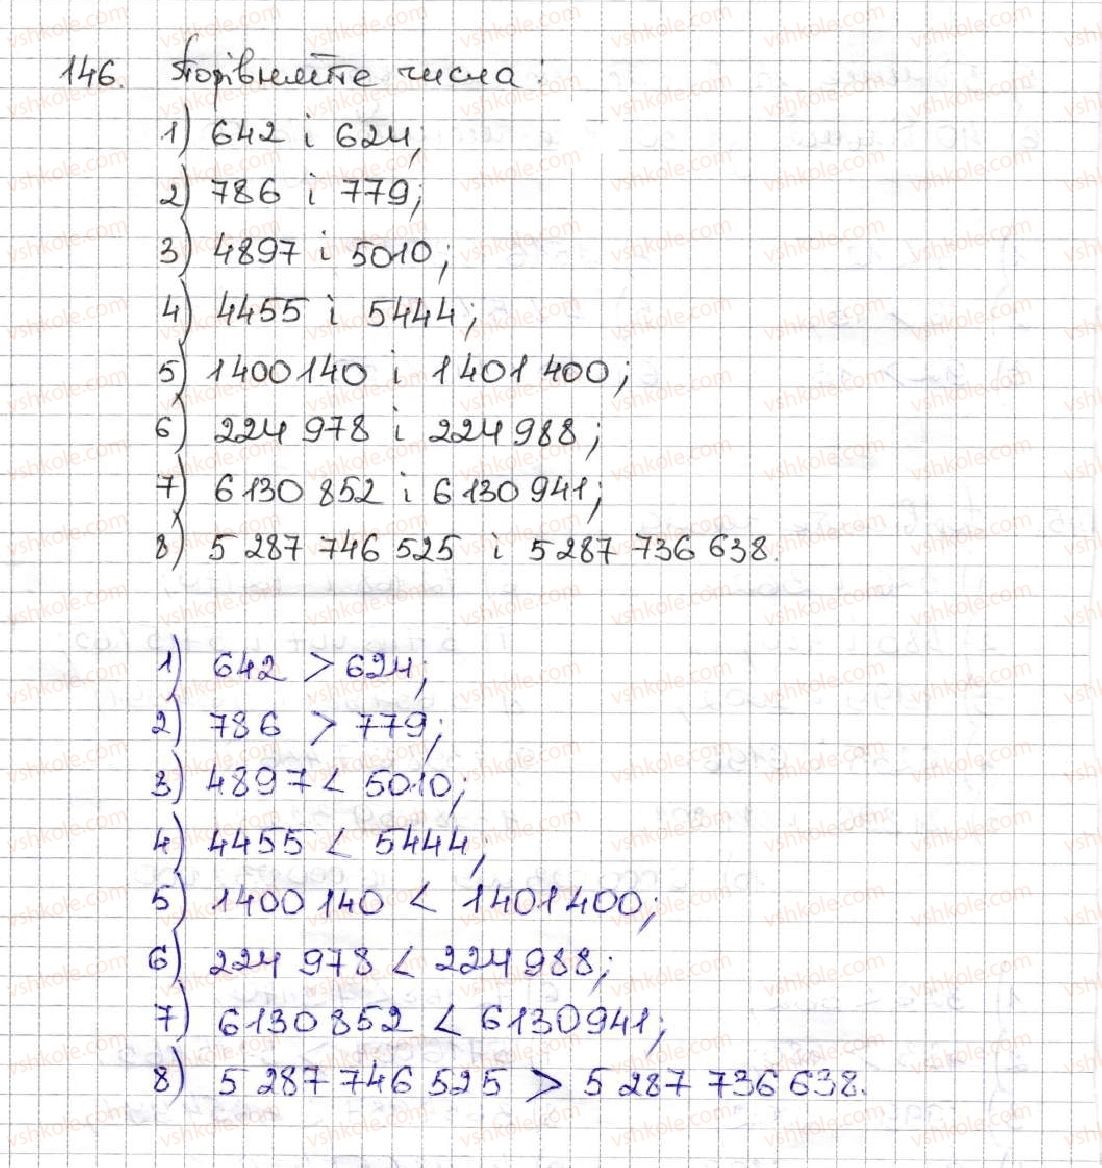 146. Порівняйте числа:
1) 642 і 624;
2) 786 і 779;
3) 4897 і 5010;
4) 4455 і 5444;
5) 1400140 і 1401400;
6) 224 978 і 224 988;
7) 6130 852 і 6130 941;
8) 5 287 746 525 і 5 287 736 638.
1) 642 > 624;
2) 786 > 779;
3) 4897 < 5010;
4) 4455 < 5444;
5) 1400 140 < 1401400;
6) 224 978 < 224 988;
7) 6130 852 < 6130941;
8) 5 287 746 525 > 5 287 736 638.